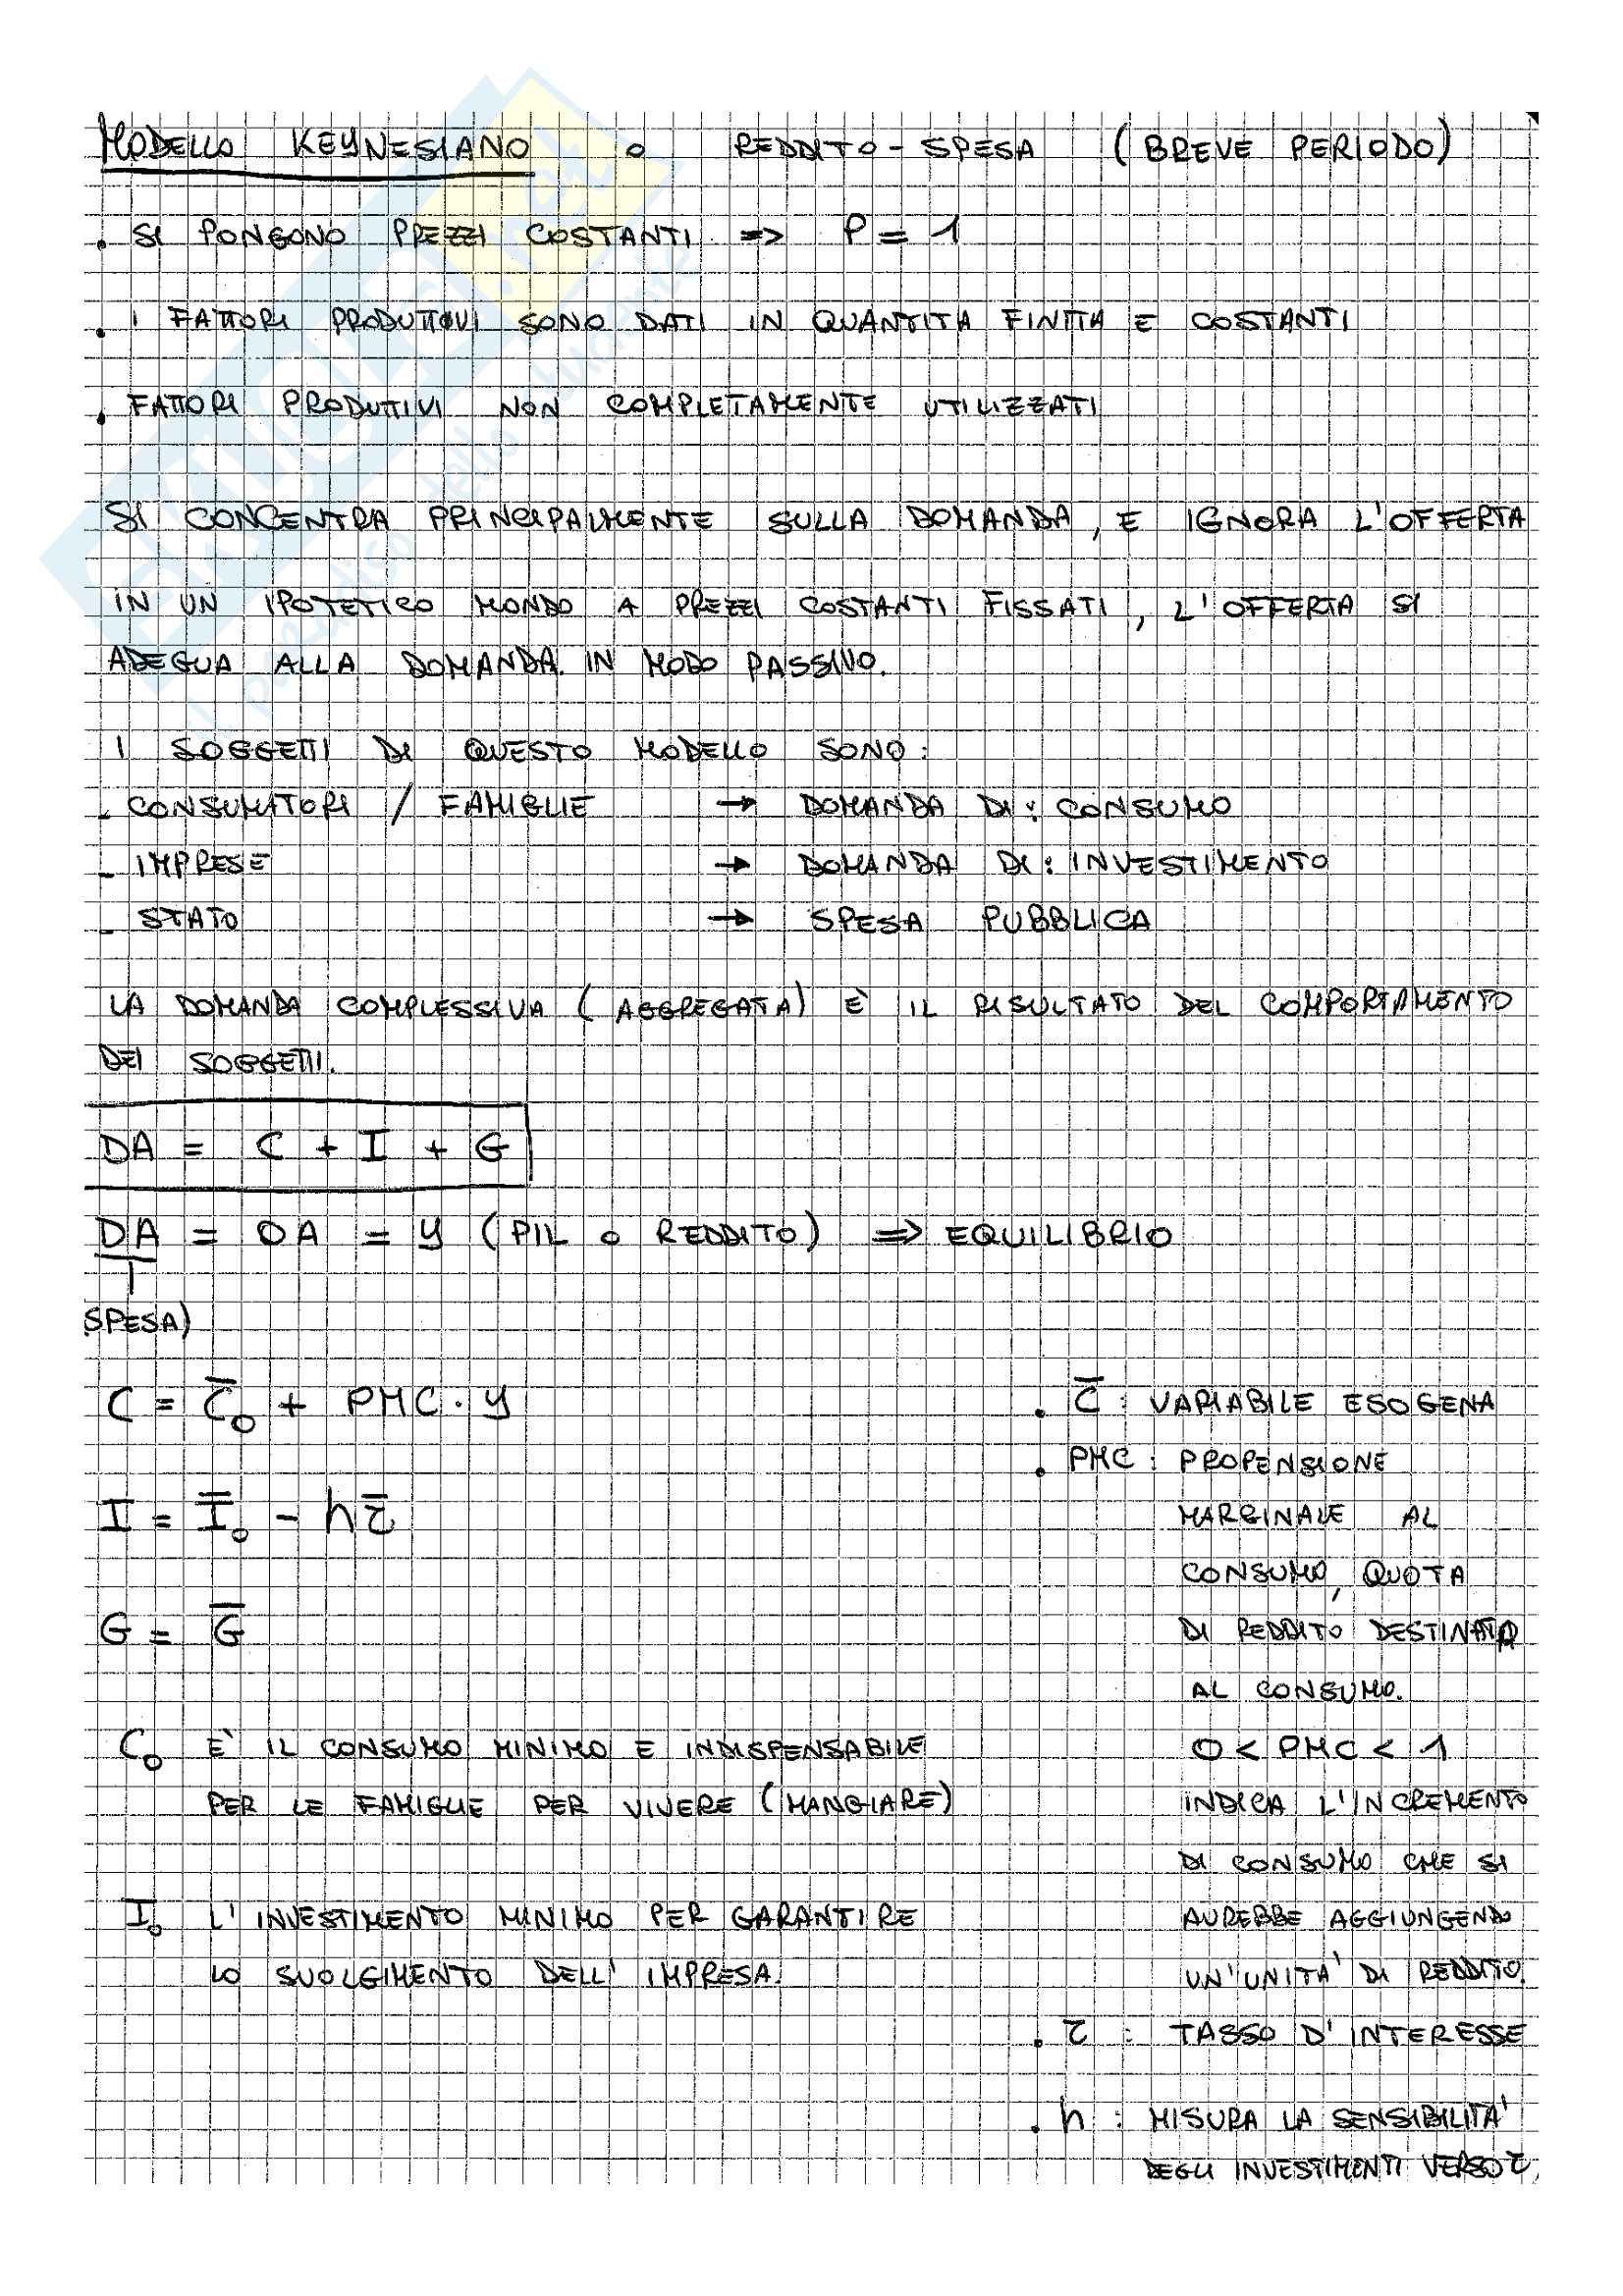 MODELLO KEYNESIANO o REDDITO-SPESA (BREVE PERIODO)
. SI PONGONO PREZZI COSTANTI => P = 1
. I FATTORI PRODUTTIVI SONO DATI IN QUANTITA FINITA E COSTANTI
. FATTORI PRODUTTIVI NON COMPLETAMENTE UTILIZZATI
SI CONCENTRA PRINCIPALMENTE SULLA DOMANDA, E IGNORA L'OFFERTA
IN UN IPOTETICO MONDO A PREZZI COSTANTI FISSATI, L'OFFERTA SI
ADEGUA ALLA DOMANDA. IN MODO PASSIVO.
I SOGGETTI DI QUESTO MODELLO SONO:
- CONSUMATORI / FAMIGLIE → DOMANDA DI: CONSUMO
- IMPRESE → DOMANDA DI: INVESTIMENTO
- STATO → SPESA PUBBLICA
LA DOMANDA COMPLESSIVA (AGGREGATA) È IL RISULTATO DEL COMPORTAMENTO
DEI SOGGETTI.
DA = C + I + G
DA = OA = Y (PIL o REDDITO) => EQUILIBRIO
SPESA)
C = C̅₀ + PMC · Y
I = I̅₀ - h r̅
G = G̅
C₀ È IL CONSUMO MINIMO E INDISPENSABILE
PER LE FAMIGLIE PER VIVERE (MANGIARE)
I₀ L'INVESTIMENTO MINIMO PER GARANTIRE
LO SVOLGIMENTO DELL'IMPRESA.
. C̅ : VARIABILE ESOGENA
. PMC : PROPENSIONE
MARGINALE AL
CONSUMO, QUOTA
DI REDDITO DESTINATA
AL CONSUMO.
0 < PMC < 1
INDICA L'INCREMENTO
DI CONSUMO CHE SI
AVREBBE AGGIUNGENDO
UN'UNITA' DI REDDITO.
. r : TASSO D'INTERESSE
. h : MISURA LA SENSIBILITA'
DEGLI INVESTIMENTI VERSO r